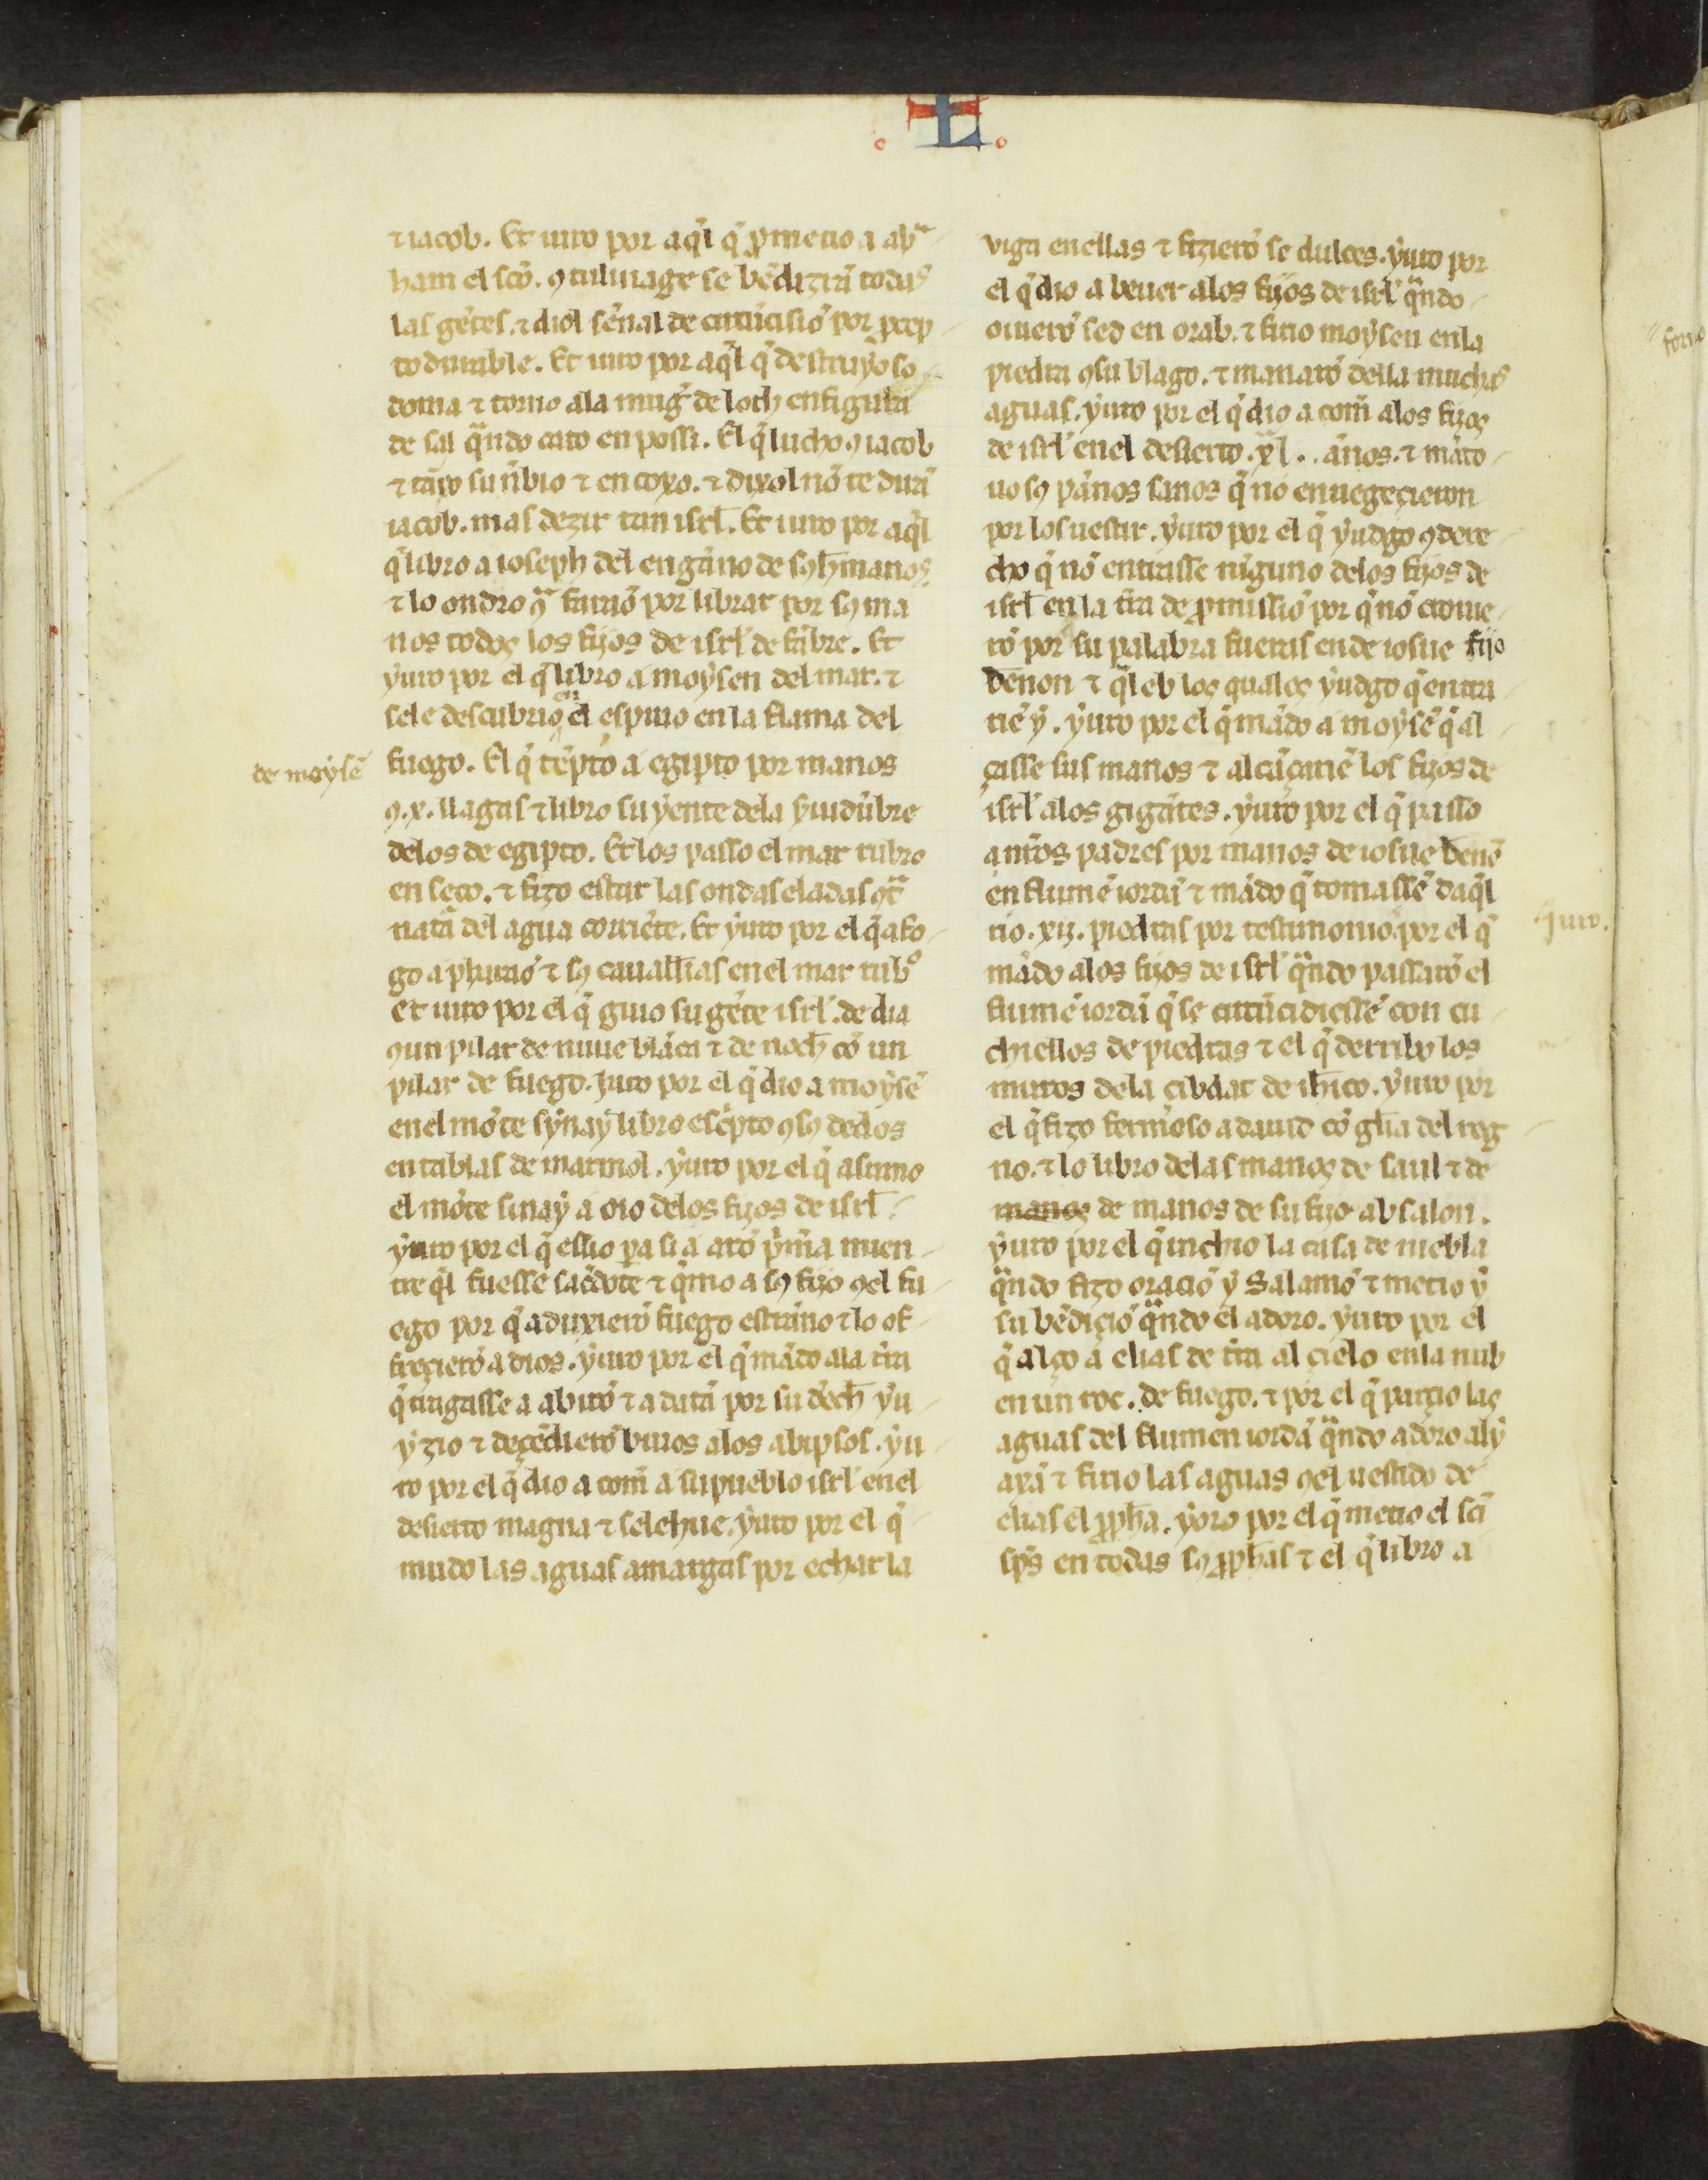 .L.
⁊ iacob. Et iuro por aq̃l q̃ ꝓmetio a abᵃ
ham el sc̃o. ꝯ tu linage se bẽdizirã todas
las gẽtes. ⁊ diol sẽnal de circũcisiõ por p̃cep
to durable. Et iuro por aq̃l q̃ destruyo so
doma ⁊ torno ala mug̃ de loth en figura
de sal q̃ndo cato en possi. El q̃ lucho ꝯ iacob
⁊ tãxo su ñbio ⁊ encoxo. ⁊ dixol nõ te dirã
iacob. mas dezir tan isrl̃. Et iuro por aq̃l
q̃ libro a ioseph del engãno de sꝯ h̃manos.
⁊ lo ondro ꝯᵃ faraõ por librar por sꝯ ma
nos todos los fijos de isrl̃ de fãbre. Et
yuro por el q̃ libro a moysen del mar. ⁊
sele descubrio en el espino en la flama del
fuego. El q̃ tẽpto a egipto por manos
de moysẽ
ꝯ .x. llagas ⁊ libro su yente dela s̃uidũbre
delos de egipto. Et los passo el mar rubro
en seco. ⁊ fizo estar las ondas eladas ꝯtᵃ
natã del agua corriẽte. Et yuro por el q̃ afo
go a pharaõ ⁊ sꝯ cauall̃ias en el mar rubᵒ
et iuro por el q̃ guio su gẽte isrl̃. de dia
ꝯ un pilar de nuue blãca ⁊ de noch̃ cõ un
pilar de fuego. Juro por el q̃ dio a moysẽ
en el mõte synay libro esc̃pto ꝯ sꝯ dedos
en tablas de marmol. yuro por el q̃ asumo
el mõte sinay a oio delos fijos de isrl̃.
yuro por el q̃ essio pa si a arõ p̃m̃a mien
tre q̃l fuesse sac̃dote ⁊ q̃mo a sꝯ fijo ꝯel fu
ego por q̃ aduxierõ fuego estrãno ⁊ lo of
frecierõ a dios. yuro por el q̃ mãdo ala t̃ra
q̃ tragasse a abirõ ⁊ a datã por su dech̃ yu
yzio ⁊ decẽdierõ biuos alos abipsos. yu
ro por el q̃ dio a com̃ a su pueblo isrl̃ en el
desierto magna ⁊ selehue. yuro por el q̃
mudo las aguas amargas por echar la
viga en ellas ⁊ fizierõ se dulces. yuro por
el q̃ dio a beuer alos fijos de isrl̃ q̃ndo
ouierõ sed en orab. ⁊ firio moysen en la
piedra ꝯ su blago. ⁊ manarõ della muchas
aguas. yuro por el q̃ dio a com̃ alos fijos
de isrl̃ en el desierto .xl. ãnos. ⁊ mãto
uo sꝯ pãnos sanos q̃ no enuegecieron
por los uestir. yuro por el q̃ yudgo ꝯ dere
cho q̃ nõ entrasse nĩguno delos fijos de
isrl̃ en la t̃ra de ꝓmissiõ por q̃ nõ crouie
rõ por su palabra fueras ende iosue fijo
de non ⁊ q̃leb los quales yudgo q̃ entra
riẽ y. yuro por el q̃ mãdo a moysẽ q̃ al
çasse sus manos ⁊ alcãçariẽ los fijos de
isrl̃ alos gigãtes. yuro por el q̃ passo
a nr̃os padres por manos de iosue de nõ
en flumẽ iordã ⁊ mãdo q̃ tomassẽ daq̃l
rio .xij. piedras por testimonio. por el q̃
Juro.
mãdo alos fijos de isrl̃ q̃ndo passarõ el
flumẽ iordã q̃ se circũcidiessẽ con cu
chiellos de piedras ⁊ el q̃ derribo los
muros dela cibdat de ih̃ico. yuro por
el q̃ fizo fermoso a dauid cõ gl̃ia del reg
no. ⁊ lo libro delas manos de saul ⁊ de
manos de manos de su fijo absalon.
yuro por el q̃ inchio la casa de niebla
q̃ndo fizo oraciõ y Salamõ ⁊ metio y
su bẽdiciõ q̃ndo el adoro. yuro por el
q̃ alço a elias de t̃ra al cielo en la nub
en un roc. de fuego. ⁊ por el q̃ partio las
aguas del flumen iordã q̃ndo adoro aly
axã ⁊ firio las aguas ꝯel uestido de
elias el ꝓph̃a. yoro por el q̃ metio el sc̃i
sp̃s en todas sꝯ ꝓph̃as ⁊ el q̃ libro a